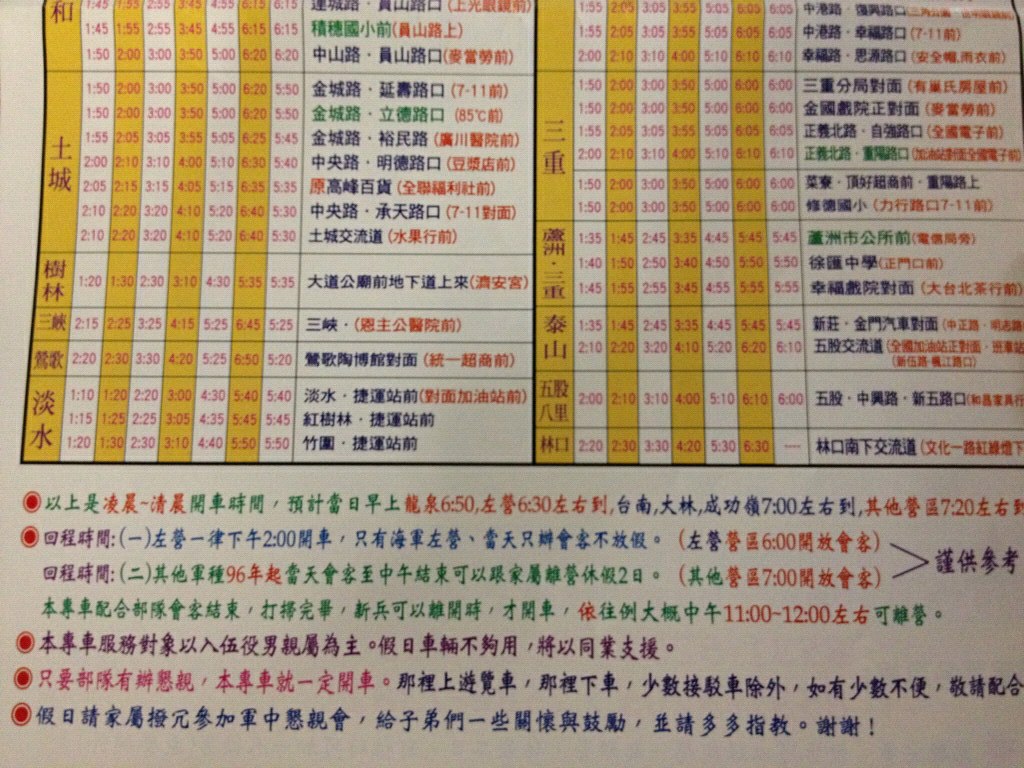 和
1:45 1:55 2:55 3:45 4:55 6:15 6:15 連城路．員山路口(上光眼鏡前)
1:45 1:55 2:55 3:45 4:55 6:15 6:15 積穗國小前(員山路上)
1:50 2:00 3:00 3:50 5:00 6:20 6:20 中山路．員山路口(麥當勞前)
土城
1:50 2:00 3:00 3:50 5:00 6:20 5:50 金城路．延壽路口 (7-11前)
1:50 2:00 3:00 3:50 5:00 6:20 5:50 金城路．立德路口 (85℃前)
1:55 2:05 3:05 3:55 5:05 6:25 5:45 金城路．裕民路 (廣川醫院前)
2:00 2:10 3:10 4:00 5:10 6:30 5:40 中央路．明德路口 (豆漿店前)
2:05 2:15 3:15 4:05 5:15 6:35 5:35 原高峰百貨 (全聯福利社前)
2:10 2:20 3:20 4:10 5:20 6:40 5:30 中央路．承天路口 (7-11對面)
2:10 2:20 3:20 4:10 5:20 6:40 5:30 土城交流道 (水果行前)
樹林
1:20 1:30 2:30 3:10 4:30 5:35 5:35 大道公廟前地下道上來(濟安宮)
三峽 2:15 2:25 3:25 4:15 5:25 6:45 5:25 三峽．(恩主公醫院前)
鶯歌 2:20 2:30 3:30 4:20 5:25 6:50 5:20 鶯歌陶博館對面 (統一超商前)
淡水
1:10 1:20 2:20 3:00 4:30 5:40 5:40 淡水．捷運站前(對面加油站前)
1:15 1:25 2:25 3:05 4:35 5:45 5:45 紅樹林．捷運站前
1:20 1:30 2:30 3:10 4:40 5:50 5:50 竹圍．捷運站前
1:55 2:05 3:05 3:55 5:05 6:05 6:05 中港路．復興路口
1:55 2:05 3:05 3:55 5:05 6:05 6:05 中港路．幸福路口 (7-11前)
2:00 2:10 3:10 4:00 5:10 6:10 6:10 幸福路．思源路口 (安全帽,雨衣前)
三重
1:50 2:00 3:00 3:50 5:00 6:00 6:00 三重分局對面 (有巢氏房屋前)
1:50 2:00 3:00 3:50 5:00 6:00 6:00 金國戲院正對面 (麥當勞前)
1:55 2:05 3:05 3:55 5:05 6:05 6:05 正義北路．自強路口 (全國電子前)
2:00 2:10 3:10 4:00 5:10 6:10 6:10 正義北路．重陽路口 (加油站對面全國電子前)
1:50 2:00 3:00 3:50 5:00 6:00 6:00 菜寮．頂好超商前．重陽路上
1:50 2:00 3:00 3:50 5:00 6:00 6:00 修德國小 (力行路口7-11前)
蘆洲．三重
1:35 1:45 2:45 3:35 4:45 5:45 5:45 蘆洲市公所前(電信局旁)
1:40 1:50 2:50 3:40 4:50 5:50 5:50 徐匯中學(正門口前)
1:45 1:55 2:55 3:45 4:55 5:55 5:55 幸福戲院對面 (大台北茶行前)
泰山
1:35 1:45 2:45 3:35 4:45 5:45 5:45 新莊．金門汽車對面 (中正路．明志路
2:10 2:20 3:20 4:10 5:20 6:20 6:10 五股交流道 (全國加油站正對面．班車站
(新伍路．楓江路口)
五股八里
2:00 2:10 3:10 4:00 5:10 6:10 6:00 五股．中興路．新五路口(和昌家具行
林口 2:20 2:30 3:30 4:20 5:30 6:30 — 林口南下交流道 (文化一路紅綠燈下
◉以上是凌晨~清晨開車時間，預計當日早上龍泉6:50,左營6:30左右到,台南,大林,成功嶺7:00左右到,其他營區7:20左右到
◉回程時間:(一)左營一律下午2:00開車，只有海軍左營、當天只辦會客不放假。 (左營營區6:00開放會客)
回程時間:(二)其他軍種96年起當天會客至中午結束可以跟家屬離營休假2日。 (其他營區7:00開放會客)
謹供參考
本專車配合部隊會客結束，打掃完畢，新兵可以離開時，才開車，依往例大概中午11:00~12:00左右可離營。
◉本專車服務對象以入伍役男親屬為主。假日車輛不夠用，將以同業支援。
◉只要部隊有辦懇親，本專車就一定開車。那裡上遊覽車，那裡下車，少數接駁車除外，如有少數不便，敬請配合
◉假日請家屬撥冗參加軍中懇親會，給子弟們一些關懷與鼓勵，並請多多指教。謝謝！